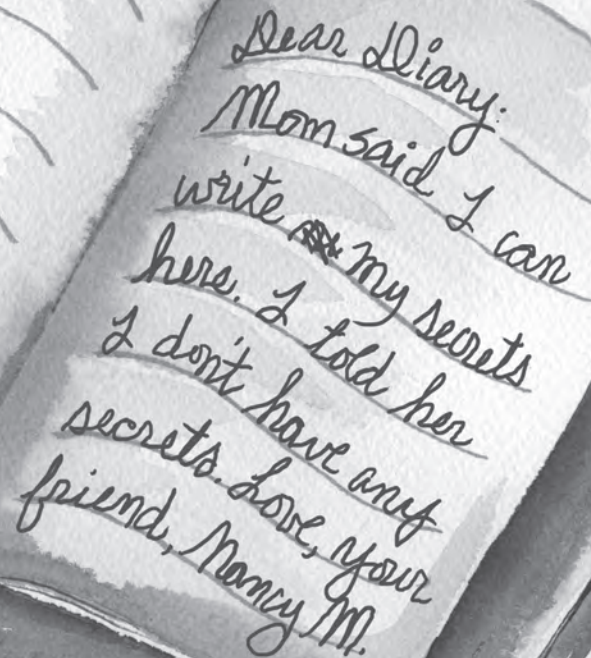 Dear Diary:
Mom said I can
write my secrets
here. I told her
I don't have any
secrets. Love, your
friend, Nancy M.